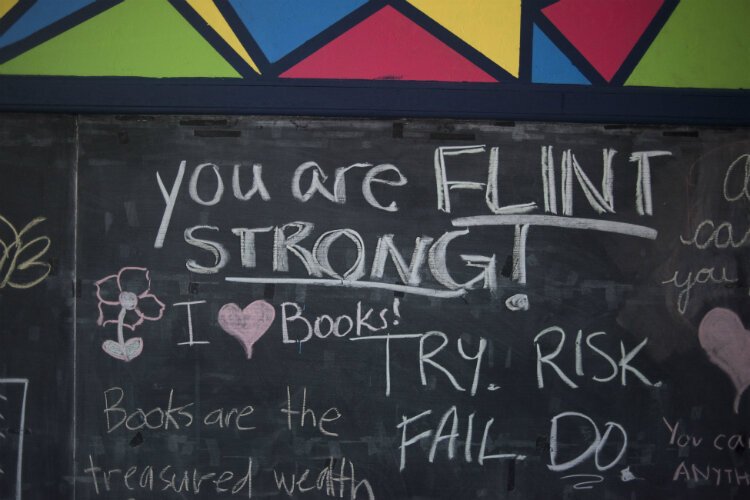 you are FLINT
STRONG!
I ♥ Books!
TRY. RISK.
FAIL. DO.
Books are the
treasured wealth
you
You